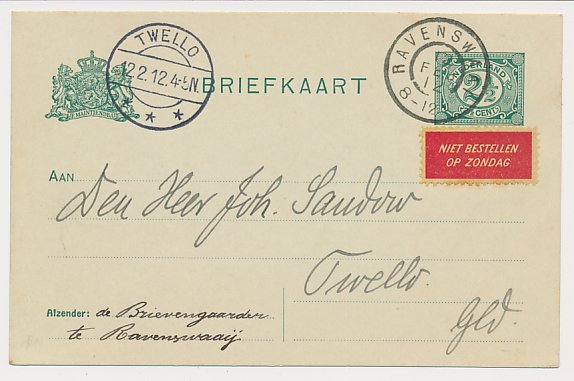 TWELLO
12.2.12.4-5N
RAVENSW
FE
12
8-12
NEDERLAND
2½
CENT
JE MAINTIENDRAI
BRIEFKAART
NIET BESTELLEN
OP ZONDAG
AAN
Den Heer Joh. Sandow
Twello.
Gld.
Afzender: de Brievengaarder
te Ravenswaaij